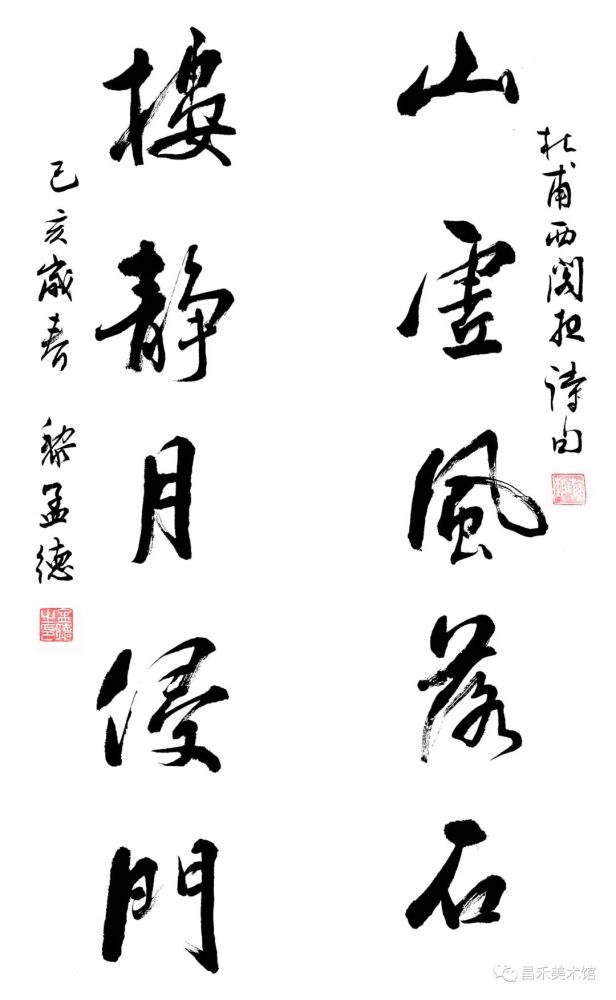 杜甫西阁夜诗句
山虚風落石
樓静月侵門
己亥歲春 黎孟德
昌禾美术馆